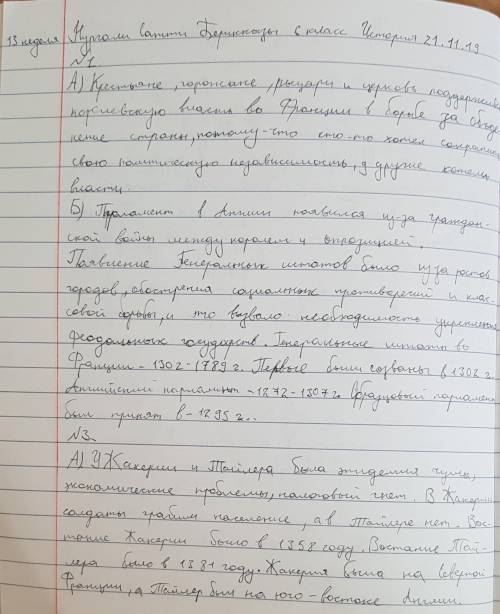 13 неделя Нургали Бериккызы 6 класс История 21.11.19
№1
А) Крестьяне, горожане, рыцари и церковь поддержив
королевскую власть во Франции в борьбе за объеди
нение страны, потому-что кто-то хотел сохранить
свою политическую независимость, а другие хотели
власти.
Б) Парламент в Англии появился из-за граждан-
ской войны между королем и оппозицией.
Появление Генеральных штатов было из за роста
городов, обострения социальных противоречий и клас-
совой борьбы, и это вызвало необходимость укрепления
феодальных государств. Генеральные штаты во
Франции - 1302-1789 г. Первые были созваны в 1302 г.
Английский парламент -1272-1307 г. Образцовый парламен
был принят в - 1295 г..
№3.
А) У Жакерии и Тайлера была эпидемия чумы,
экономические проблемы, налоговый гнет. В Жакерии
солдаты грабили население, а в Тайлере нет. Вос-
тание Жакерии было в 1358 году. Востание Тай-
лера было в 1381 году. Жакерия была на Северной
Франции, а Тайлер был на юго-востоке Англии.